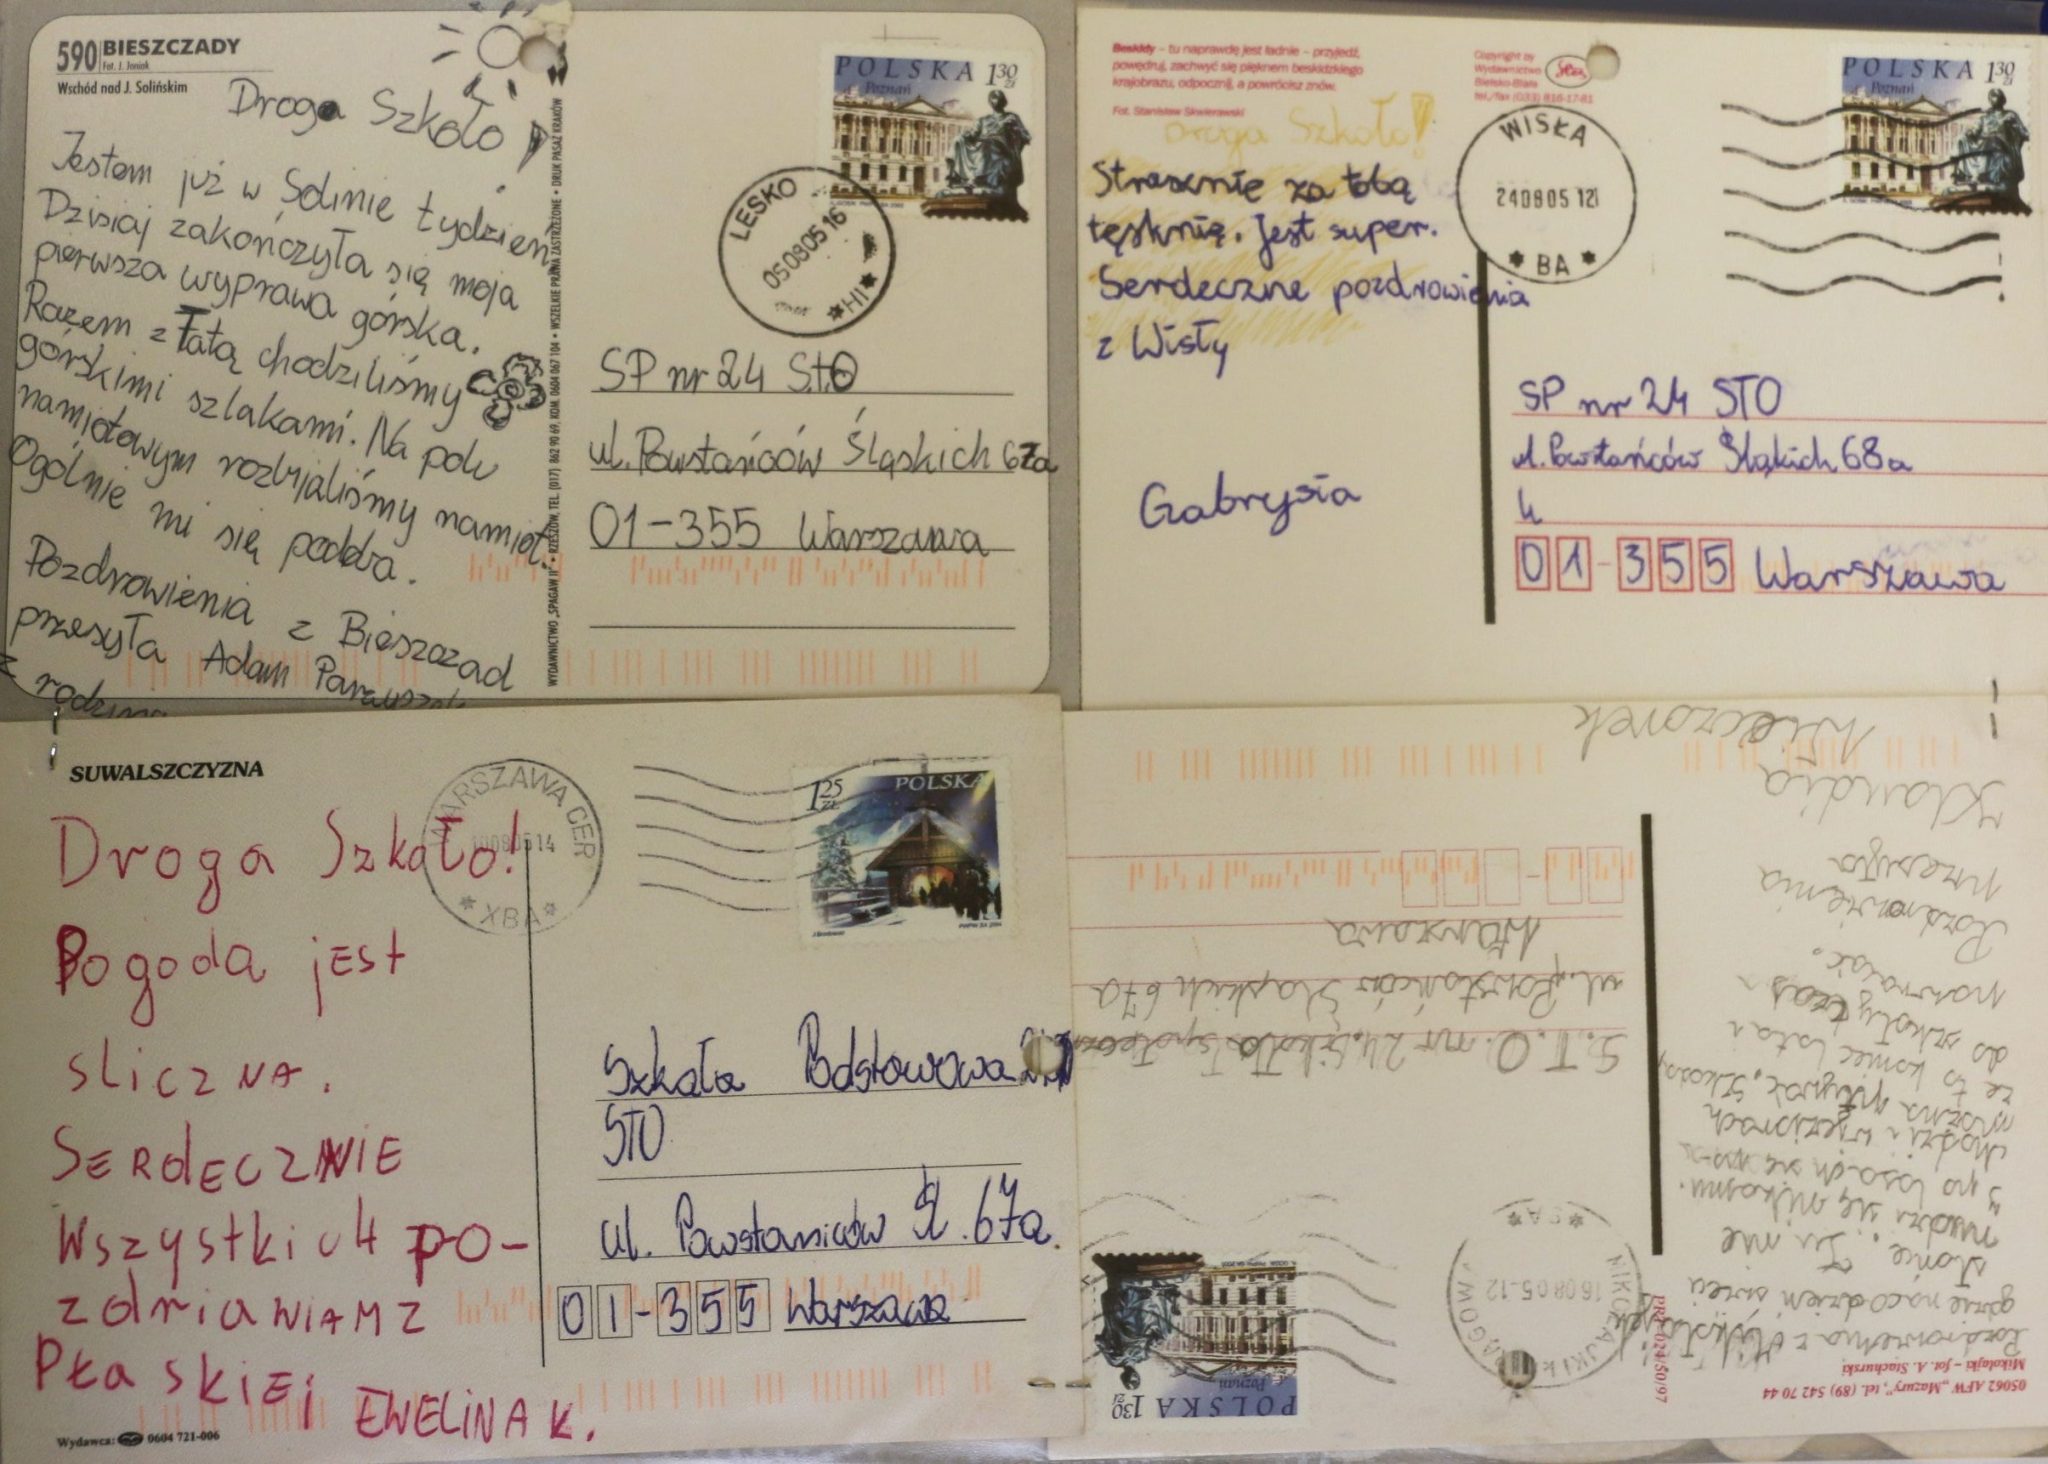 590 BIESZCZADY
Fot. J. Joniak
Wschód nad J. Solińskim
Droga Szkoło!
Jestem już w Solinie tydzień
Dzisiaj zakończyła się moja
pierwsza wyprawa górska.
Razem z Tatą chodziliśmy
górskimi szlakami. Na polu
namiotowym rozbijaliśmy namiot.
Ogólnie mi się podoba.
Pozdrowienia z Bieszczad
przesyła Adam
z rodziną
WYDAWNICTWO „SPAGAW II" • RZESZÓW, TEL. (017) 862 90 69, KOM. 0604 067 104 • WSZELKIE PRAWA ZASTRZEŻONE • DRUK PASAŻ KRAKÓW
POLSKA 1 30 zł
Poznań
LESKO
050805 16
*HI*
SP nr 24 STO
ul. Powstańców Śląskich 67a
01-355 Warszawa
Beskidy – tu naprawdę jest ładnie – przyjedź,
powędruj, zachwyć się pięknem beskidzkiego
krajobrazu, odpocznij, a powrócisz znów.
Fot. Stanisław Skwierawski
Copyright by
Wydawnictwo
Bielsko-Biała
tel./fax (033) 816-17-81
Droga Szkoło!
Strasznie za tobą
tęsknię. Jest super.
Serdeczne pozdrowienia
z Wisły
Gabrysia
WISŁA
240805 12
* BA *
POLSKA 1 30 zł
Poznań
SP nr 24 STO
ul. Powstańców Śląkich 68a
4
01-355 Warszawa
SUWALSZCZYZNA
Droga Szkoło!
Pogoda jEST
śliczNA.
SERdECZNIE
WszystkicH PO-
zdriawiAM Z
PŁASKIEj EWELINA K.
Wydawca: 0604 721-006
WARSZAWA CER
0805 14
* XBA *
1 25 ZŁ POLSKA
Szkoła Podstowowa
STO
ul. Powstaniców Śl. 67a
01-355 Warszawa
05962 AFW „Mazury", tel. (89) 542 70 44
Mikołajki – fot. A. Stachurski
Pozdrowienia z
gdzie na co dzień świeci
słońce. Tu nie
nudzi się nikomu.
że to koniec lata i
do szkoły czas
powracać.
Pozdrowienia
przesyła
Klaudia
Wieczorek
MIKOŁAJKI k. MRĄGOWA
160805-12
* SA *
POLSKA 1 30 zł
Poznań
S.T.O. nr 24. Szkoła
ul. Powstańców Śląskich 67a
Warszawa